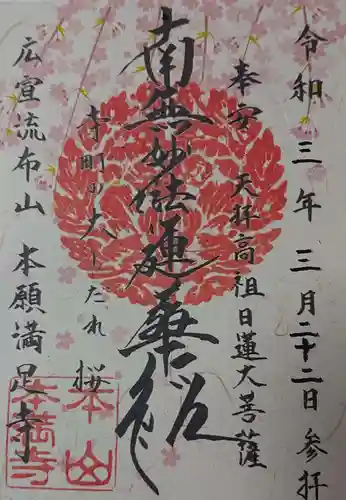 令和三年三月二十二日参拝
奉安 天拝高祖日蓮大菩薩
南無妙法蓮華経
寺町の大しだれ桜
広宣流布山 本願満足寺
本山
本満寺